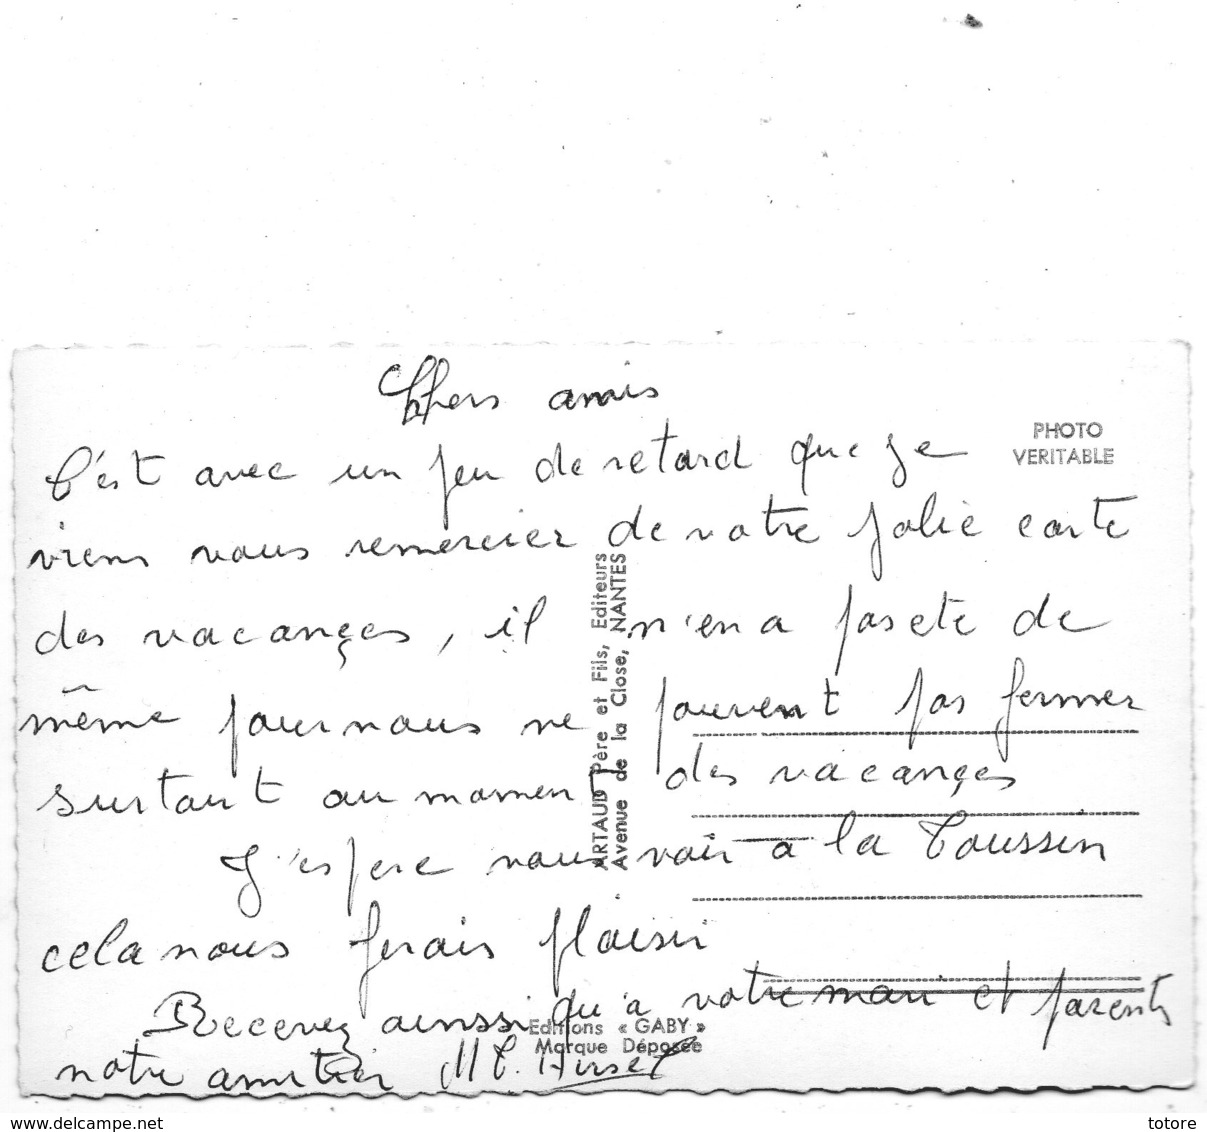 Chers amis
C'est avec un peu de retard que je
viens vous remercier de votre jolie carte
des vacançes, il n'en a pas ete de
même pour nous ne pouvent pas fermer
surtout au moment des vacançes
J'espere vous voir a la Toussin
cela nous ferais plaisir
Recevez ainssi qu'a votre mari et parents
notre amitier
PHOTO
VERITABLE
ARTAUD Père et Fils, Editeurs
Avenue de la Close, NANTES
Editions « GABY »
Marque Déposée
www.delcampe.net
totore